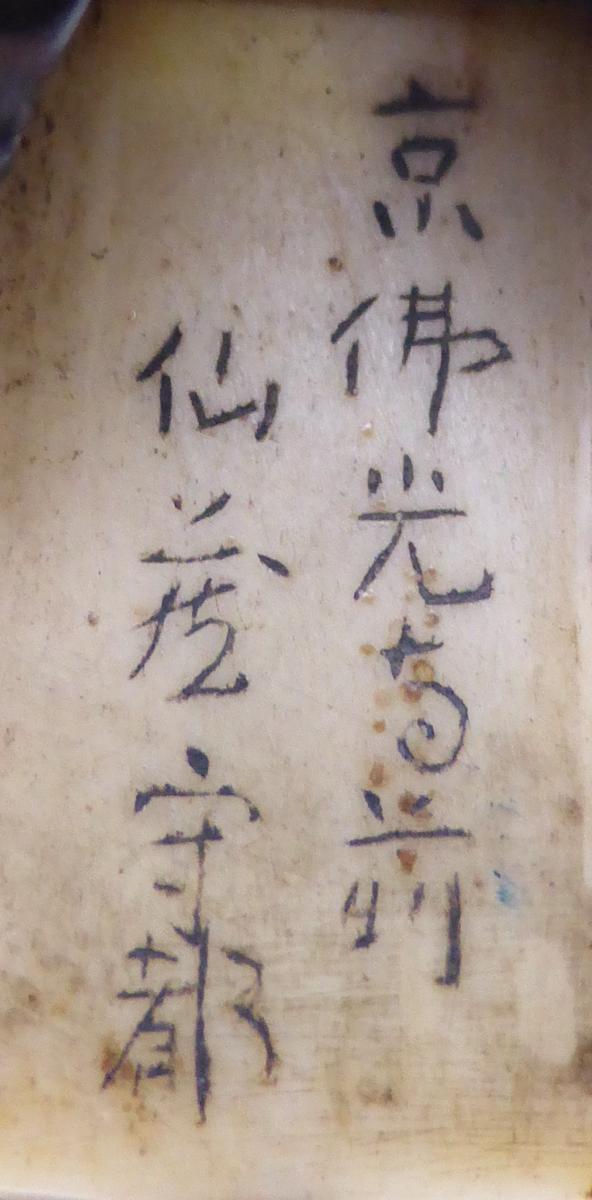 京佛光寺前
仙蔵守都